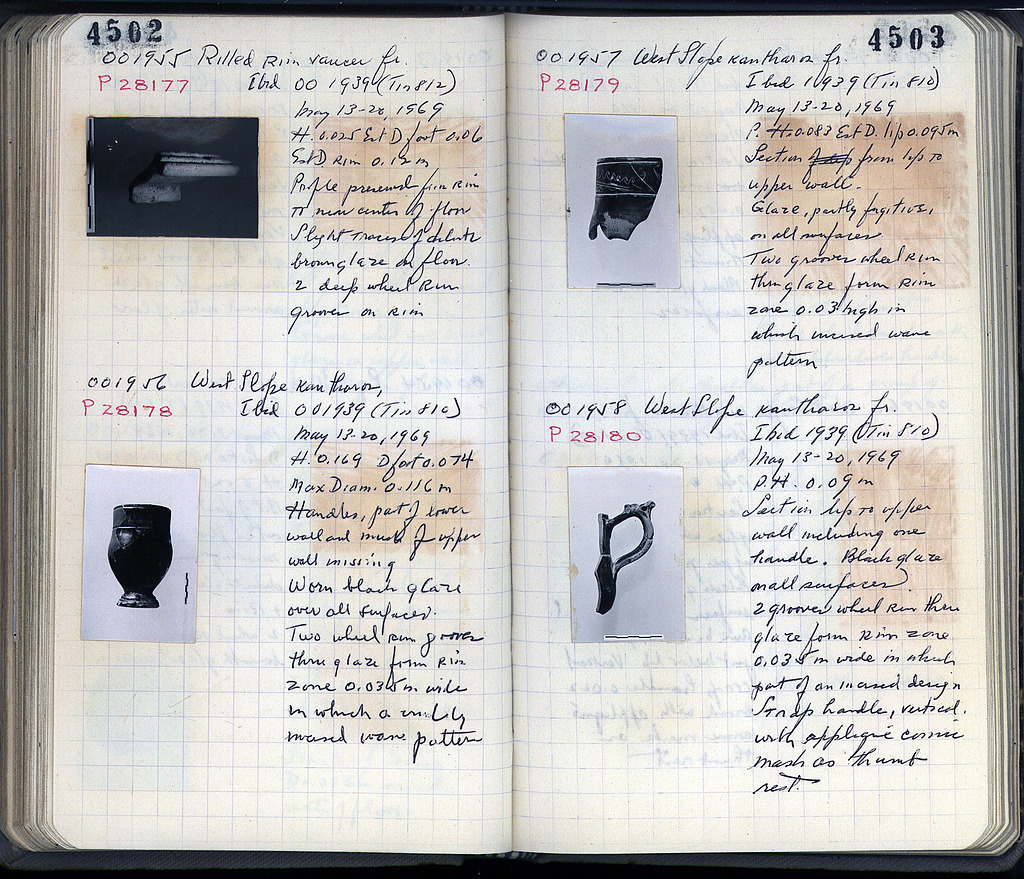 4502
OO 1955 Rilled rim saucer fr.
P 28177 Ibid OO 1939 (Tin 812)
May 13-20, 1969
H. 0.025 Est D foot 0.06
Est D Rim 0.12 m
Profile preserved from Rim
to near center of floor
Slight traces of dilute
brown glaze on floor.
2 deep wheel Run
grooves on Rim
OO 1956 West Slope Kantharos,
P 28178 Ibid OO 1939 (Tin 810)
May 13-20, 1969
H. 0.169 D foot 0.074
Max Diam. 0.116 m
Handles, part of lower
wall and much of upper
wall missing
Worn black glaze
over all surfaces.
Two wheel Run grooves
thru glaze form Rim
zone 0.035 m wide
in which a crudely
incised wave pattern
4503
OO 1957 West Slope Kantharos fr.
P 28179 Ibid 1939 (Tin 810)
May 13-20, 1969
P. H. 0.083 Est D. lip 0.095 m
Section of from lip to
upper wall.
Glaze, partly fugitive,
on all surfaces
Two grooves wheel Run
thru glaze form Rim
zone 0.03 high in
which incised wave
pattern
OO 1958 West Slope Kantharos fr.
P 28180 Ibid 1939 (Tin 810)
May 13-20, 1969
P.H. 0.09 m
Section lip to upper
wall including one
handle. Black glaze
on all surfaces
2 grooves wheel Run thru
glaze form Rim zone
0.035 m wide in which
part of an incised design
Strap handle, vertical.
with appliqué comic
mask as thumb
rest.